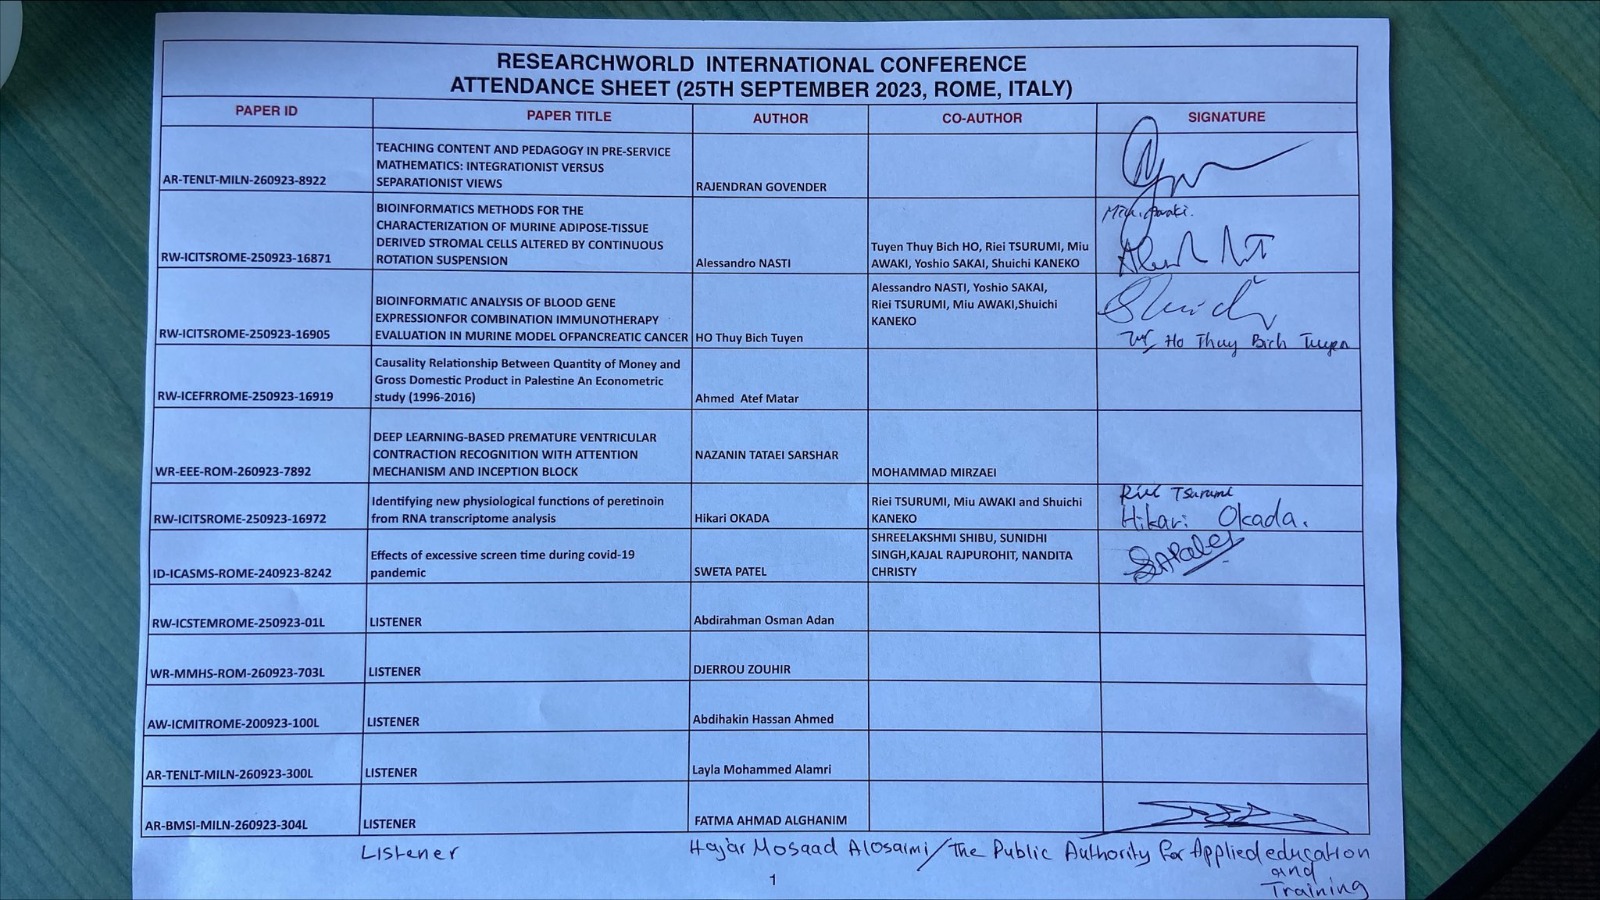 RESEARCHWORLD INTERNATIONAL CONFERENCE
ATTENDANCE SHEET (25TH SEPTEMBER 2023, ROME, ITALY)
PAPER ID PAPER TITLE AUTHOR CO-AUTHOR SIGNATURE
TEACHING CONTENT AND PEDAGOGY IN PRE-SERVICE
MATHEMATICS: INTEGRATIONIST VERSUS
AR-TENLT-MILN-260923-8922 SEPARATIONIST VIEWS RAJENDRAN GOVENDER
BIOINFORMATICS METHODS FOR THE
CHARACTERIZATION OF MURINE ADIPOSE-TISSUE
DERIVED STROMAL CELLS ALTERED BY CONTINUOUS Tuyen Thuy Bich HO, Riei TSURUMI, Miu
RW-ICITSROME-250923-16871 ROTATION SUSPENSION Alessandro NASTI AWAKI, Yoshio SAKAI, Shuichi KANEKO
Alessandro NASTI, Yoshio SAKAI,
BIOINFORMATIC ANALYSIS OF BLOOD GENE Riei TSURUMI, Miu AWAKI,Shuichi
EXPRESSIONFOR COMBINATION IMMUNOTHERAPY KANEKO
RW-ICITSROME-250923-16905 EVALUATION IN MURINE MODEL OFPANCREATIC CANCER HO Thuy Bich Tuyen Ho Thuy Bich Tuyen
Causality Relationship Between Quantity of Money and
Gross Domestic Product in Palestine An Econometric
RW-ICEFRROME-250923-16919 study (1996-2016) Ahmed Atef Matar
DEEP LEARNING-BASED PREMATURE VENTRICULAR
CONTRACTION RECOGNITION WITH ATTENTION NAZANIN TATAEI SARSHAR
WR-EEE-ROM-260923-7892 MECHANISM AND INCEPTION BLOCK MOHAMMAD MIRZAEI
Identifying new physiological functions of peretinoin Riei TSURUMI, Miu AWAKI and Shuichi Riei Tsurumi
RW-ICITSROME-250923-16972 from RNA transcriptome analysis Hikari OKADA KANEKO Hikari Okada.
SHREELAKSHMI SHIBU, SUNIDHI
Effects of excessive screen time during covid-19 SINGH,KAJAL RAJPUROHIT, NANDITA
ID-ICASMS-ROME-240923-8242 pandemic SWETA PATEL CHRISTY
RW-ICSTEMROME-250923-01L LISTENER Abdirahman Osman Adan
WR-MMHS-ROM-260923-703L LISTENER DJERROU ZOUHIR
AW-ICMITROME-200923-100L LISTENER Abdihakin Hassan Ahmed
AR-TENLT-MILN-260923-300L LISTENER Layla Mohammed Alamri
AR-BMSI-MILN-260923-304L LISTENER FATMA AHMAD ALGHANIM
Listener Hajar Mosaad Alosaimi/The Public Authority for Applied education
and
Training
1